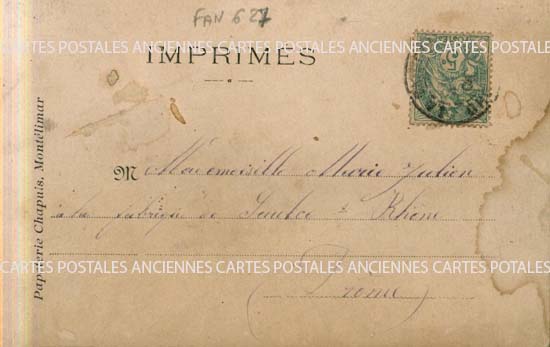 FAN 627
CARTES POSTALES ANCIENNES CARTES POSTALES ANCIENNES CARTES POSTALES
IMPRIMÉS
Papeterie Chapuis, Montélimar
M Mademoiselle Marie Julien
à la fabrique de Saulce s Rhône
CARTES POSTALES ANCIENNES CARTES POSTALES ANCIENNES CARTES POTALES
(Drôme)